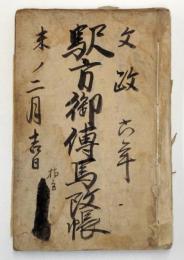 文政六年
駅方御傳馬改帳
未ノ二月吉日